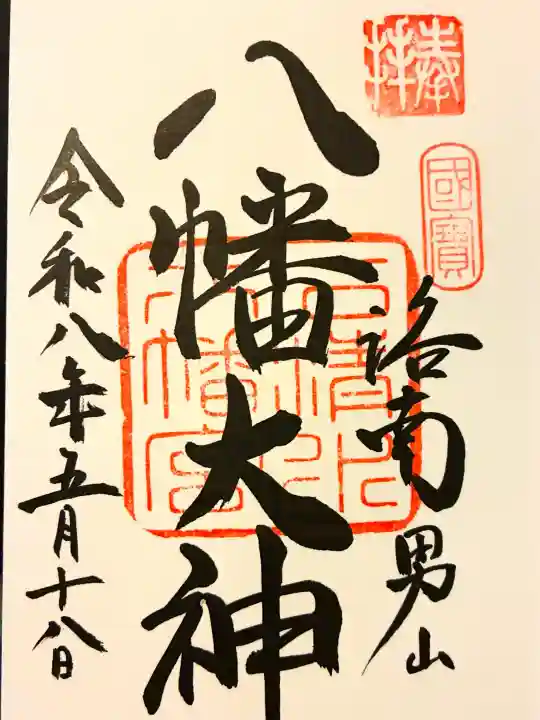 奉拝
國寶
洛南 男山
八幡大神
石清水八幡宮
令和八年五月十八日